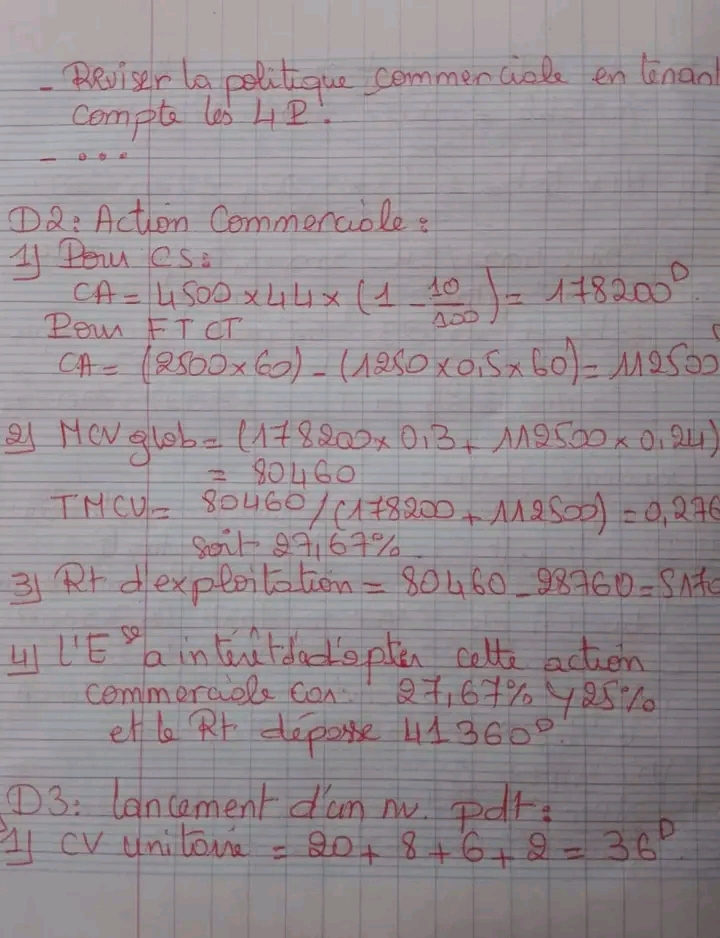 - Reviser la politique commerciale en tenant
compte les 4 P.
- ...
D2: Action Commerciale:
1) Pour CS:
CA = 4500 × 44 × (1 - 10/100) = 178200D
Pour FTCT
CA = (2500 × 60) - (1250 × 0,5 × 60) = 112500
2) MCV glob = (178200 × 0,3 + 112500 × 0,24)
= 80460
TMCV = 80460 / (178200 + 112500) = 0,276
soit 27,67%
3) Rt d'exploitation = 80460 - 28760 = 5170
4) L'Ese a intérêt d'adopter cette action
commerciale car 27,67% > 25%
et le Rt dépasse 41360D.
D3: lancement d'un nv. pdt:
1) CV unitaire = 20 + 8 + 6 + 2 = 36D